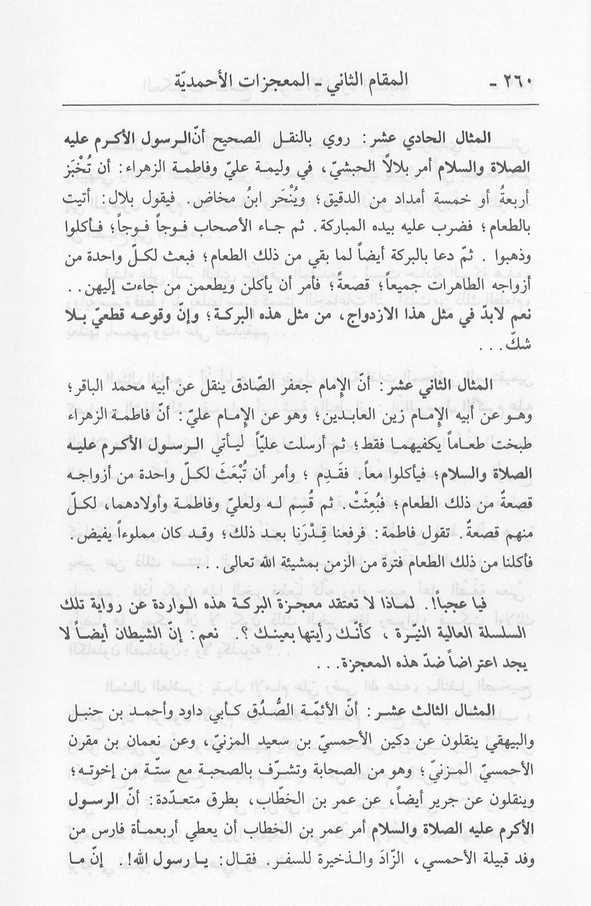 ٢٦٠ - المقام الثاني - المعجزات الأحمديّة
المثال الحادي عشر: روي بالنقل الصحيح أنّ الرسول الأكرم عليه
الصلاة والسلام أمر بلالًا الحبشيّ، في وليمة عليّ وفاطمة الزهراء: أن تُخْبَز
أربعةُ أو خمسة أمداد من الدقيق؛ ويُنْحَر ابنُ مخاض. فيقول بلال: أتيت
بالطعام؛ فضرب عليه بيده المباركة. ثم جاء الأصحاب فوجاً فوجاً؛ فأكلوا
وذهبوا . ثمّ دعا بالبركة أيضاً لما بقي من ذلك الطعام؛ فبعث لكلّ واحدة من
أزواجه الطاهرات جميعاً؛ قصعةً؛ فأمر أن يأكلن ويطعمن من جاءت إليهن..
نعم لابدّ في مثل هذا الازدواج، من مثل هذه البركة؛ وإنّ وقوعه قطعيّ بلا
شكّ...
المثال الثاني عشر: أنّ الإمام جعفر الصّادق ينقل عن أبيه محمد الباقر؛
وهو عن أبيه الإمام زين العابدين؛ وهو عن الإمام عليّ: أنّ فاطمة الزهراء
طبخت طعاماً يكفيهما فقط؛ ثم أرسلت عليّاً ليأتي الرسول الأكرم عليه
الصلاة والسلام؛ فيأكلوا معاً. فقَدِم ؛ وأمر أن تُبْعَثَ لكلّ واحدة من أزواجه
قصعةٌ من ذلك الطعام؛ فبُعِثَتْ. ثم قُسِم له ولعليّ وفاطمة وأولادهما، لكلّ
منهم قصعةٌ. تقول فاطمة: فرفعنا قِدْرَنا بعد ذلك؛ وقد كان مملوءاً يفيض.
فأكلنا من ذلك الطعام فترة من الزمن بمشيئة الله تعالى...
فيا عجباً!. لماذا لا تعتقد معجزة البركة هذه الواردة عن رواية تلك
السلسلة العالية النيّرة ، كأنّك رأيتها بعينك ؟. نعم: إنّ الشيطان أيضاً لا
يجد اعتراضاً ضدّ هذه المعجزة...
المثال الثالث عشر: أنّ الأئمّة الصُّدُق كأبي داود وأحمد بن حنبل
والبيهقي ينقلون عن دكين الأحمسيّ بن سعيد المزنيّ، وعن نعمان بن مقرن
الأحمسيّ المزنيّ؛ وهو من الصحابة وتشرّف بالصحبة مع ستّة من إخوته؛
وينقلون عن جرير أيضاً، عن عمر بن الخطّاب، بطرق متعدّدة: أنّ الرسول
الأكرم عليه الصلاة والسلام أمر عمر بن الخطاب أن يعطي أربعمأة فارس من
وفد قبيلة الأحمسي، الزّادَ والذخيرة للسفر. فقال: يا رسول الله!. إنّ ما